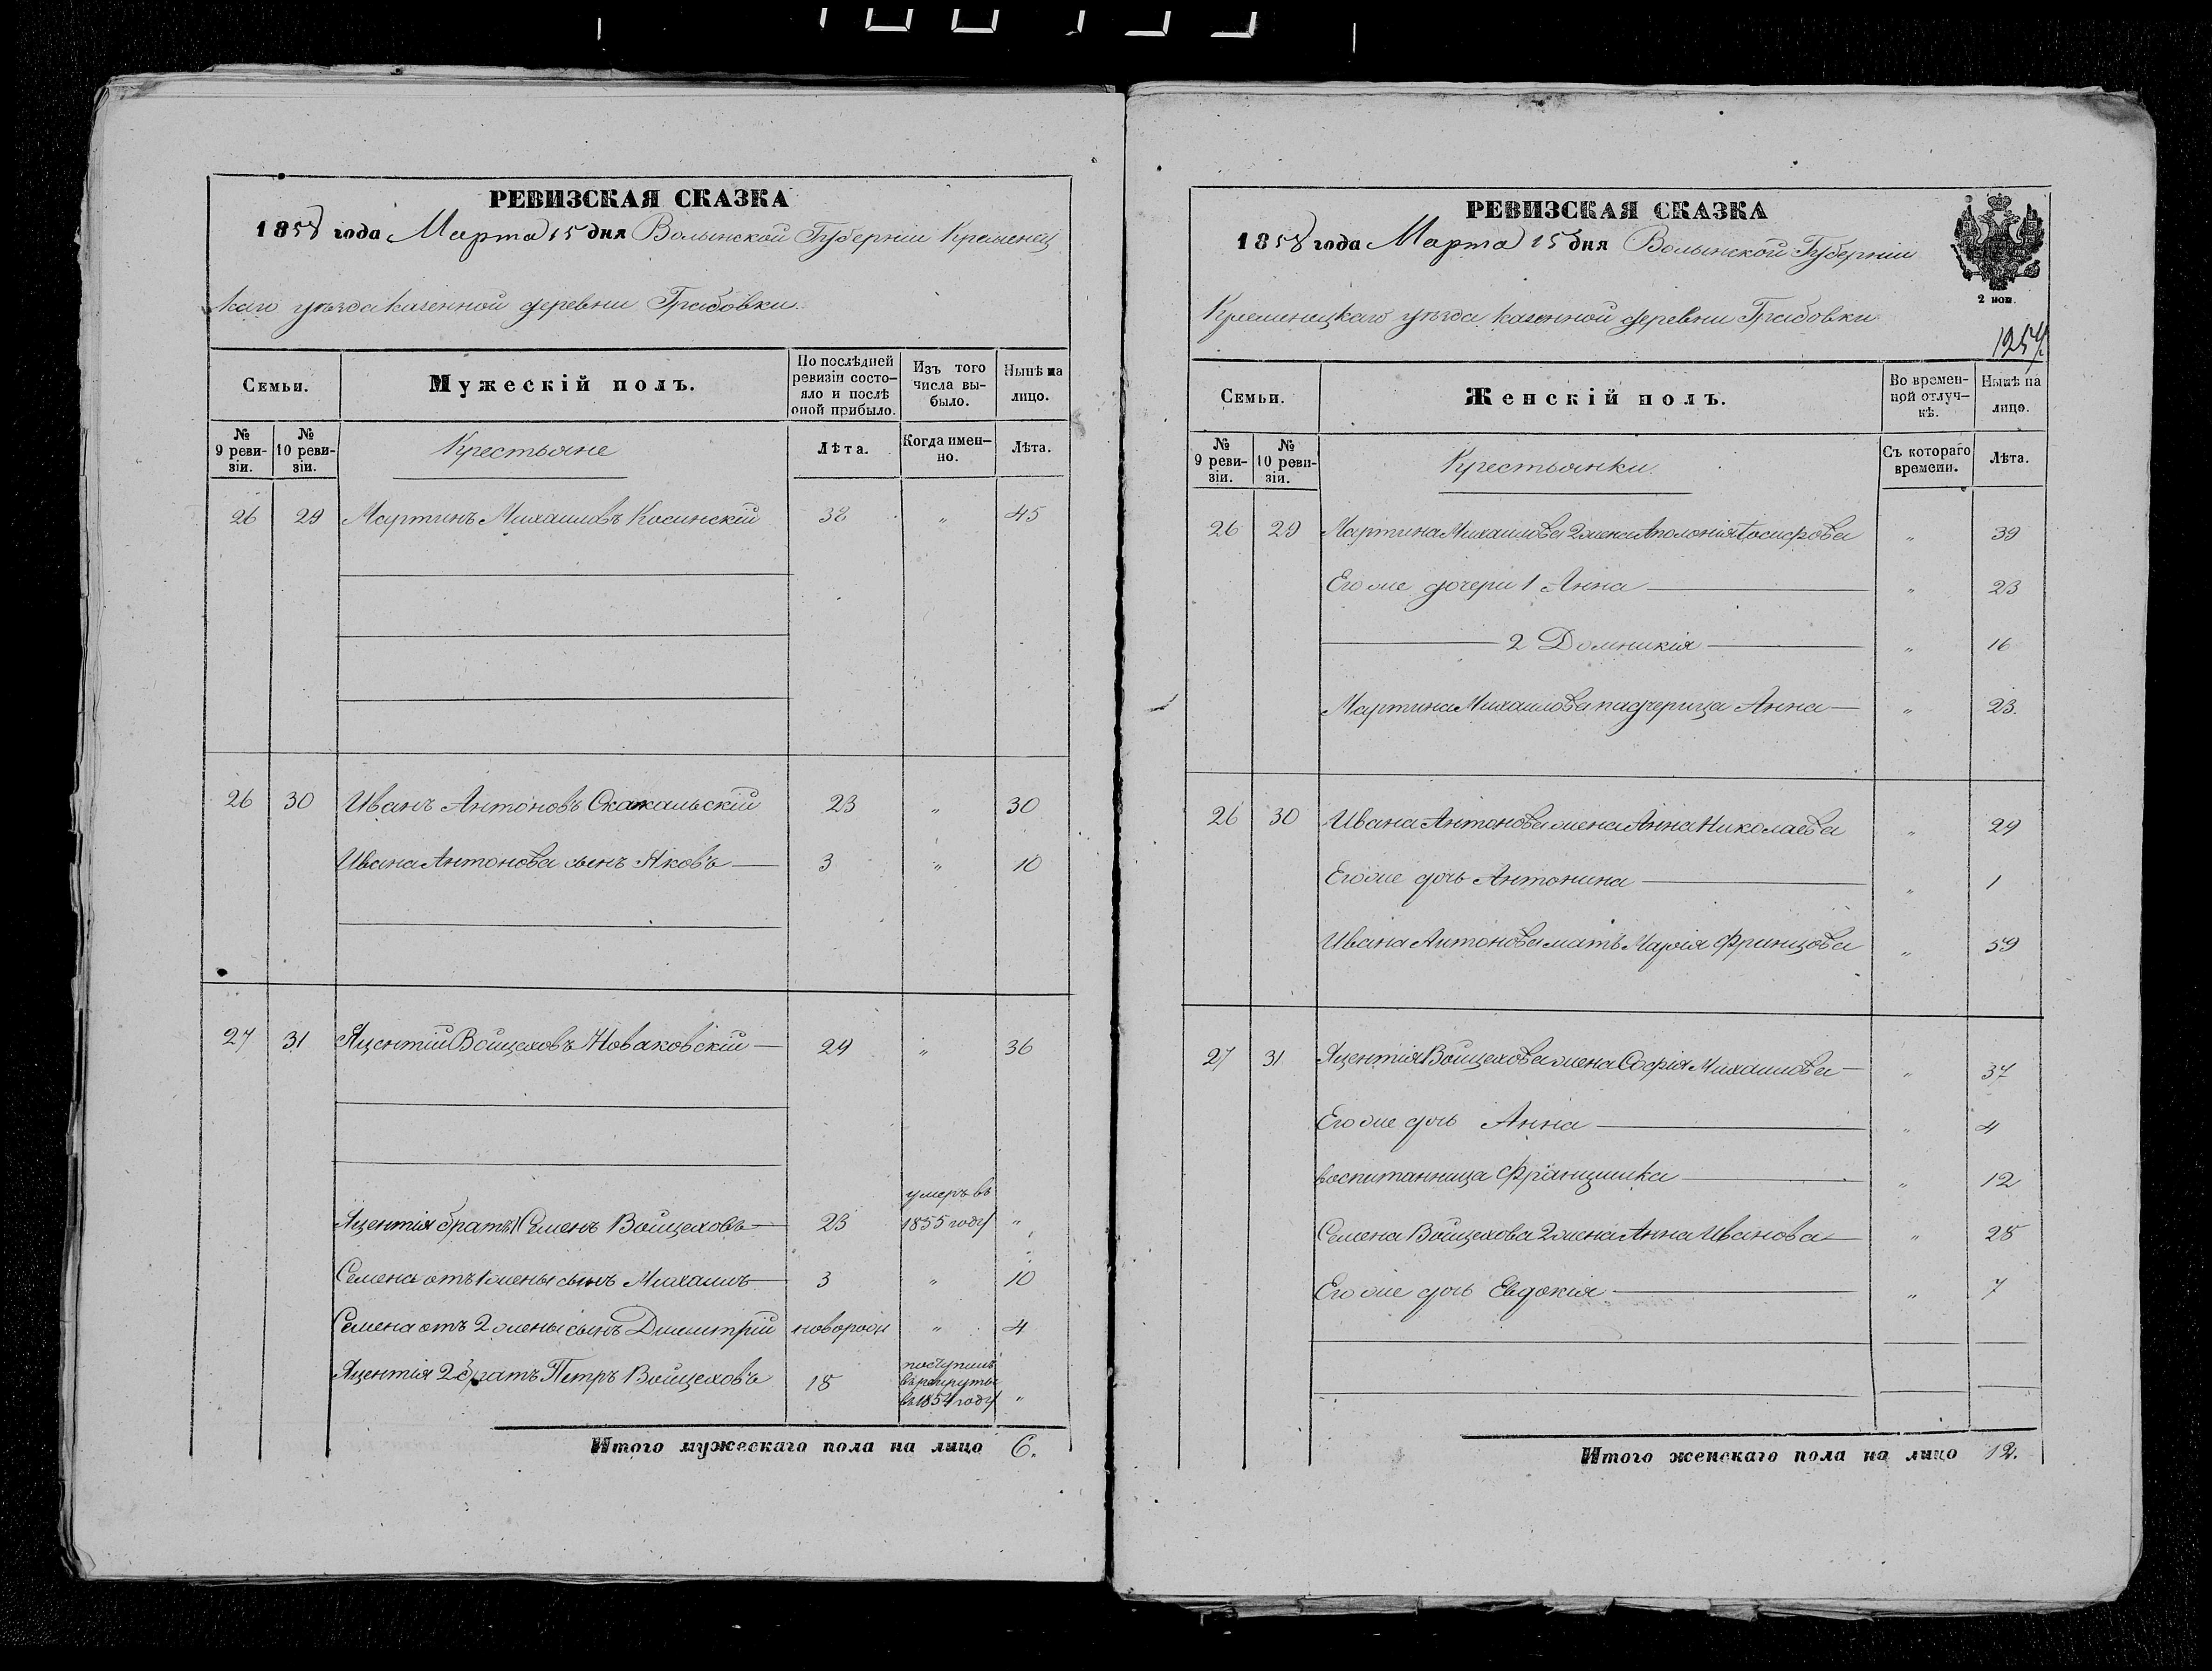 РЕВИЗСКАЯ СКАЗКА
1858 года Марта 15 дня Волынской Губерніи Кременец
каго уѣзда казенной деревни Грабовки.
Семьи.
Мужескій полъ.
По послѣдней ревизіи состо-
яло и послѣ оной прибыло.
Изъ того числа вы-
было.
Нынѣ на лицо.
№ 9 реви-
зіи.
№ 10 реви-
зіи.
Крестьяне
Лѣта.
Когда имен-
но.
Лѣта.
26 29 Мартинъ Михаиловъ Косинскій 38 " 45
26 30 Иванъ Антоновъ Скакальскій 23 " 30
Ивана Антонова сынъ Яковъ 3 " 10
27 31 Яцентій Войцеховъ Новаковскій 29 " 36
Яцентія братъ 1 Семенъ Войцеховъ 23 умеръ въ 1855 году "
Семена отъ 1 жены сынъ Михаилъ 3 " 10
Семена отъ 2 жены сынъ Димитрій новорож " 4
Яцентія 2 братъ Петръ Войцеховъ 18 поступилъ въ рекруты въ 1854 году "
Итого мужескаго пола на лицо 6.
РЕВИЗСКАЯ СКАЗКА
1858 года Марта 15 дня Волынской Губерніи
2 коп.
Кременецкаго уѣзда казенной деревни Грабовки
Семьи.
Женскій полъ.
Во времен-
ной отлуч-
кѣ.
Нынѣ на лицо.
№ 9 реви-
зіи.
№ 10 реви-
зіи.
Крестьянки
Съ котораго времени.
Лѣта.
26 29 Мартина Михаилова 2 жена Аполонія Іосифова " 39
Его же дочери 1 Анна " 23
2 Домникія " 16
Мартина Михаилова падчерица Анна " 23.
26 30 Ивана Антонова жена Анна Николаева " 29
Его же дочь Антонина " 1
Ивана Антонова мать Марія Францова " 59
27 31 Яцентія Войцехова жена Софія Михаилова " 37
Его же дочь Анна " 4
воспитанница Францишка " 12
Семена Войцехова 2 жена Анна Иванова " 28
Его же дочь Евдокія " 7
Итого женскаго пола на лицо 12.